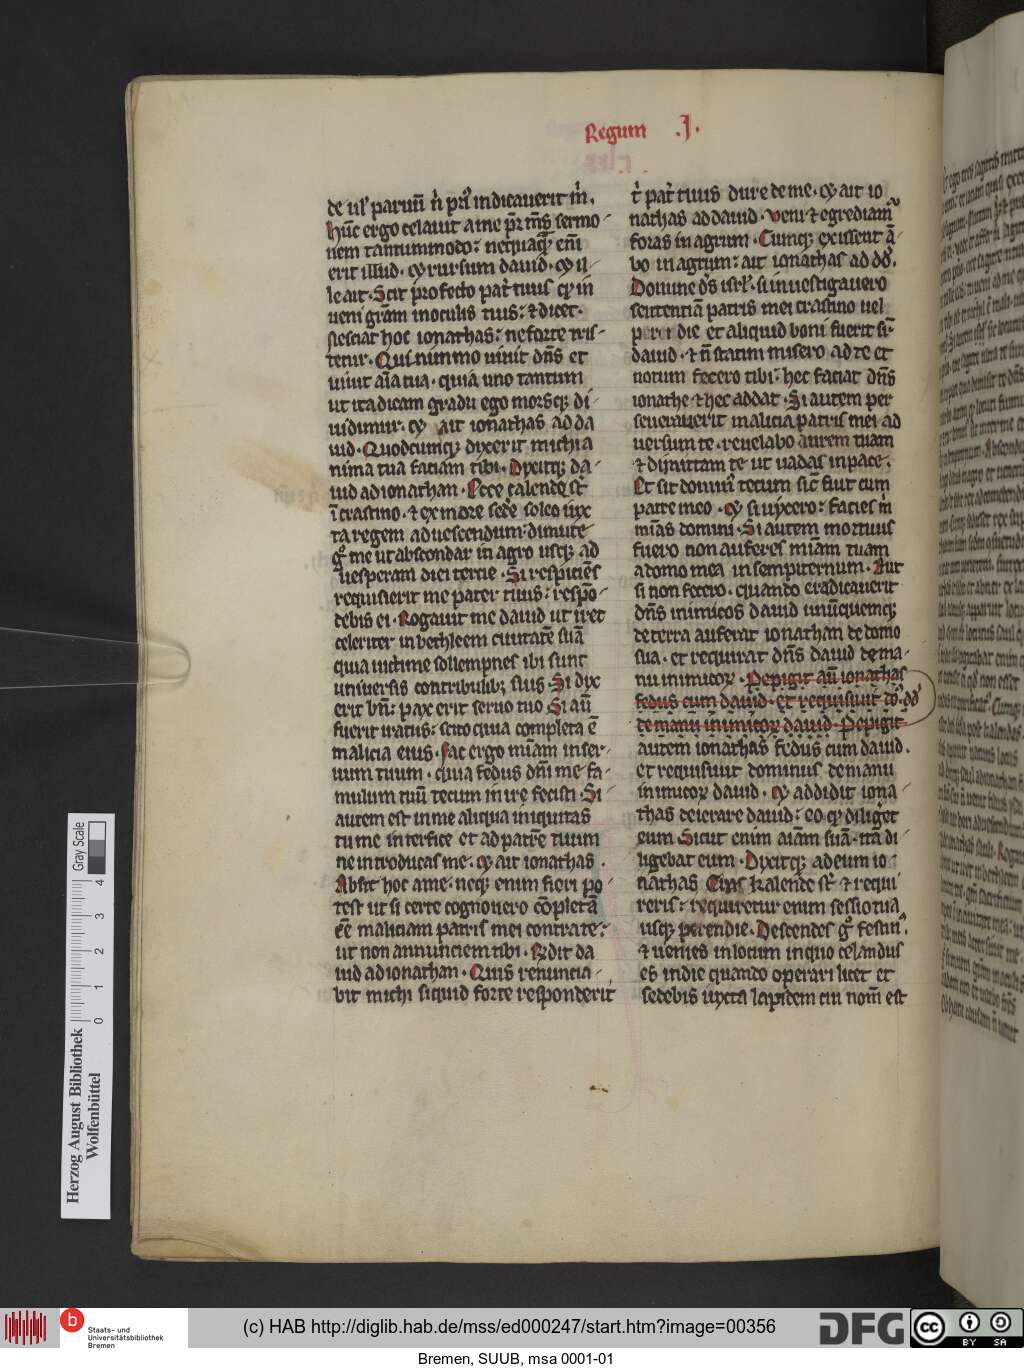 Regum .I.
de ul' paruū n̄ pͥ' indicauerit m̄.
hūc ergo celauit a me pr̄ mͧs sermo-
nem tantummodo: nequaq̄ enī
erit illud. & rursum dauid. & il-
le ait. Scit profecto pat̉ tuus q̉ in
ueni gr̄am in oculis tuis: & dicet.
nesciat hoc ionathas: ne forte tris-
tetur. Quinimmo uiuit dn̄s et
uiuit aīa tua. quia uno tantum
ut ita dicam gradu ego morsq; di-
uidimur. & ait ionathas ad da
uid. Quodcumq; dixerit michi a
nima tua faciam tibi. Dixitq; da-
uid ad ionathan. Ecce calende st̄
ī crastino. & ex more sede̅ soleo iux
ta regem ad uescendum. dimitte
gͦ me ut abscondar in agro usq; ad
uesperam diei tertie. Si respiciēs
requisierit me pater tuus: respō-
debis ei. Rogauit me dauid ut iret
celeriter in bethleem ciuitatē suā
quia uictime sollempnes ibi sunt
uniuersis contribulib; suis. Si dix
erit bn̄: pax erit seruo tuo. Si aū
fuerit iratus: scito quia completa ē
malicia eius. fac ergo mīam in ser-
uum tuum. quia fedus dn̄i me fa-
mulum tuū tecum inire fecisti. Si
autem est in me aliqua iniquitas
tu me interfice et ad patrē tuum
ne introducas me. & ait ionathas.
Absit hoc a me. neq; enim fieri po
test ut si certe cognouero cōpletā
eē maliciam patris mei contra te:
ut non annunciem tibi. Rñdit da
uid ad ionathan. Quis renuncia-
bit michi siquid forte responderit
t̉ pat̉ tuus dure de me. & ait io
nathas ad dauid. veni & egrediam̉
foras in agrum. Cumq; exissent ā-
bo in agrum: ait ionathas ad dd̄.
Domine ds̄ isrl'. si inuestigauero
sententiā patris mei crastino uel
perendie et aliquid boni fuerit sup̄
dauid. & n̄ statim misero ad te et
notum fecero tibi: hec faciat dn̄s
ionathe & hec addat. Si autem per
seuerauerit malicia patris mei ad
uersum te. reuelabo aurem tuam
& dimittam te ut uadas in pace.
Et sit domin̄ tecum sic̄ fuit cum
patre meo. & si uixero: facies m̄
mīas domini. Si autem mortuus
fuero non auferes mīam tuam
a domo mea in sempiternum. Aut
si non fecero. quando eradicauerit
dn̄s inimicos dauid unūquemq;
de terra auferat ionathan de domo
sua. et requirat dn̄s dauid de ma-
nu inimicoꝝ. Pepigit aū ionathas
fedus cum dauid. et requisiuit do͛.dd̄
de manu inimicoꝝ dauid. Pepigit
autem ionathas fedus cum dauid.
et requisiuit dominus de manu
inimicoꝝ dauid. & addidit iona-
thas deierare dauid: eo q̉ diliget
eum. Sicut enim aīam suā. ita di-
ligebat eum. Dixitq; ad eum io-
nathas Cras kalende st̄ & requi
reris: requiretur enim sessio tua
usq; perendie. Descendes gͦ festin̉
& uenies in locum in quo celandus
es in die quando operari licet et
sedebis iuxta lapidem cui nom̄ est
Herzog August Bibliothek
Wolfenbüttel
Gray Scale
0 1 2 3 4
b
Staats- und
Universitätsbibliothek
Bremen
(c) HAB http://diglib.hab.de/mss/ed000247/start.htm?image=00356
DFG
cc BY SA
Bremen, SUUB, msa 0001-01